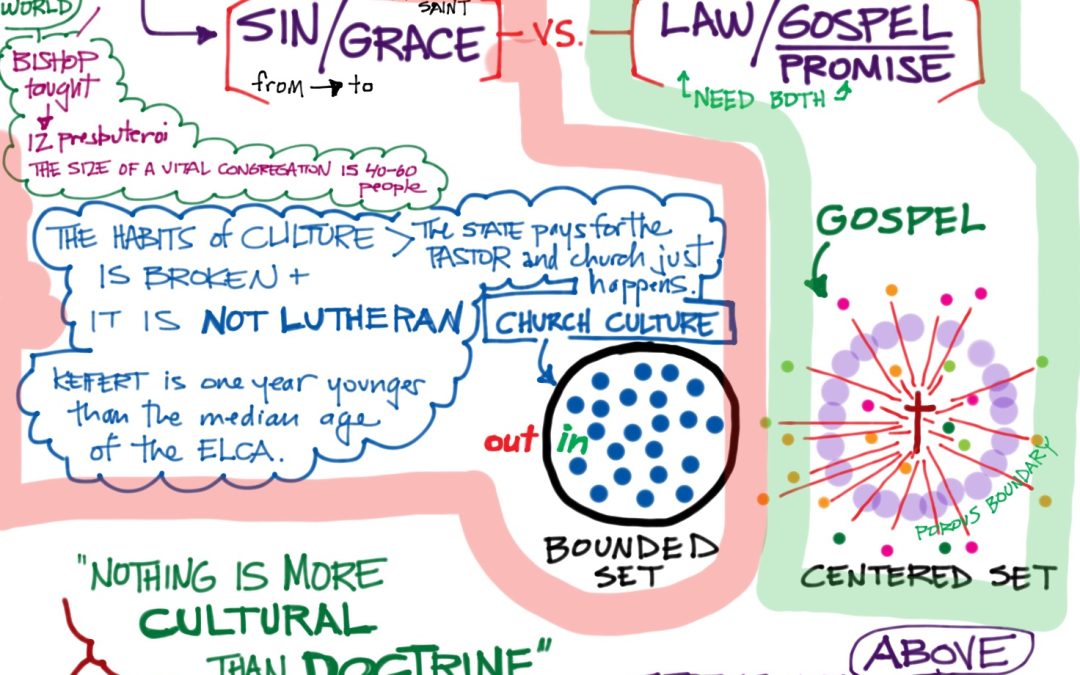 WORLD
SAINT
SIN/GRACE
from → to
VS.
LAW/GOSPEL
PROMISE
NEED BOTH
BISHOP
taught
12 presbuteroi
THE SIZE OF A VITAL CONGREGATION IS 40-60
people
THE HABITS of CULTURE >
IS BROKEN +
IT IS NOT LUTHERAN
The STATE pays for the
PASTOR and church just
happens.
CHURCH CULTURE
KEIFERT is one year younger
than the median age
of the ELCA.
out in
BOUNDED
SET
GOSPEL
POROUS BOUNDARY
CENTERED SET
"NOTHING IS MORE
CULTURAL
THAN DOCTRINE"
ABOVE